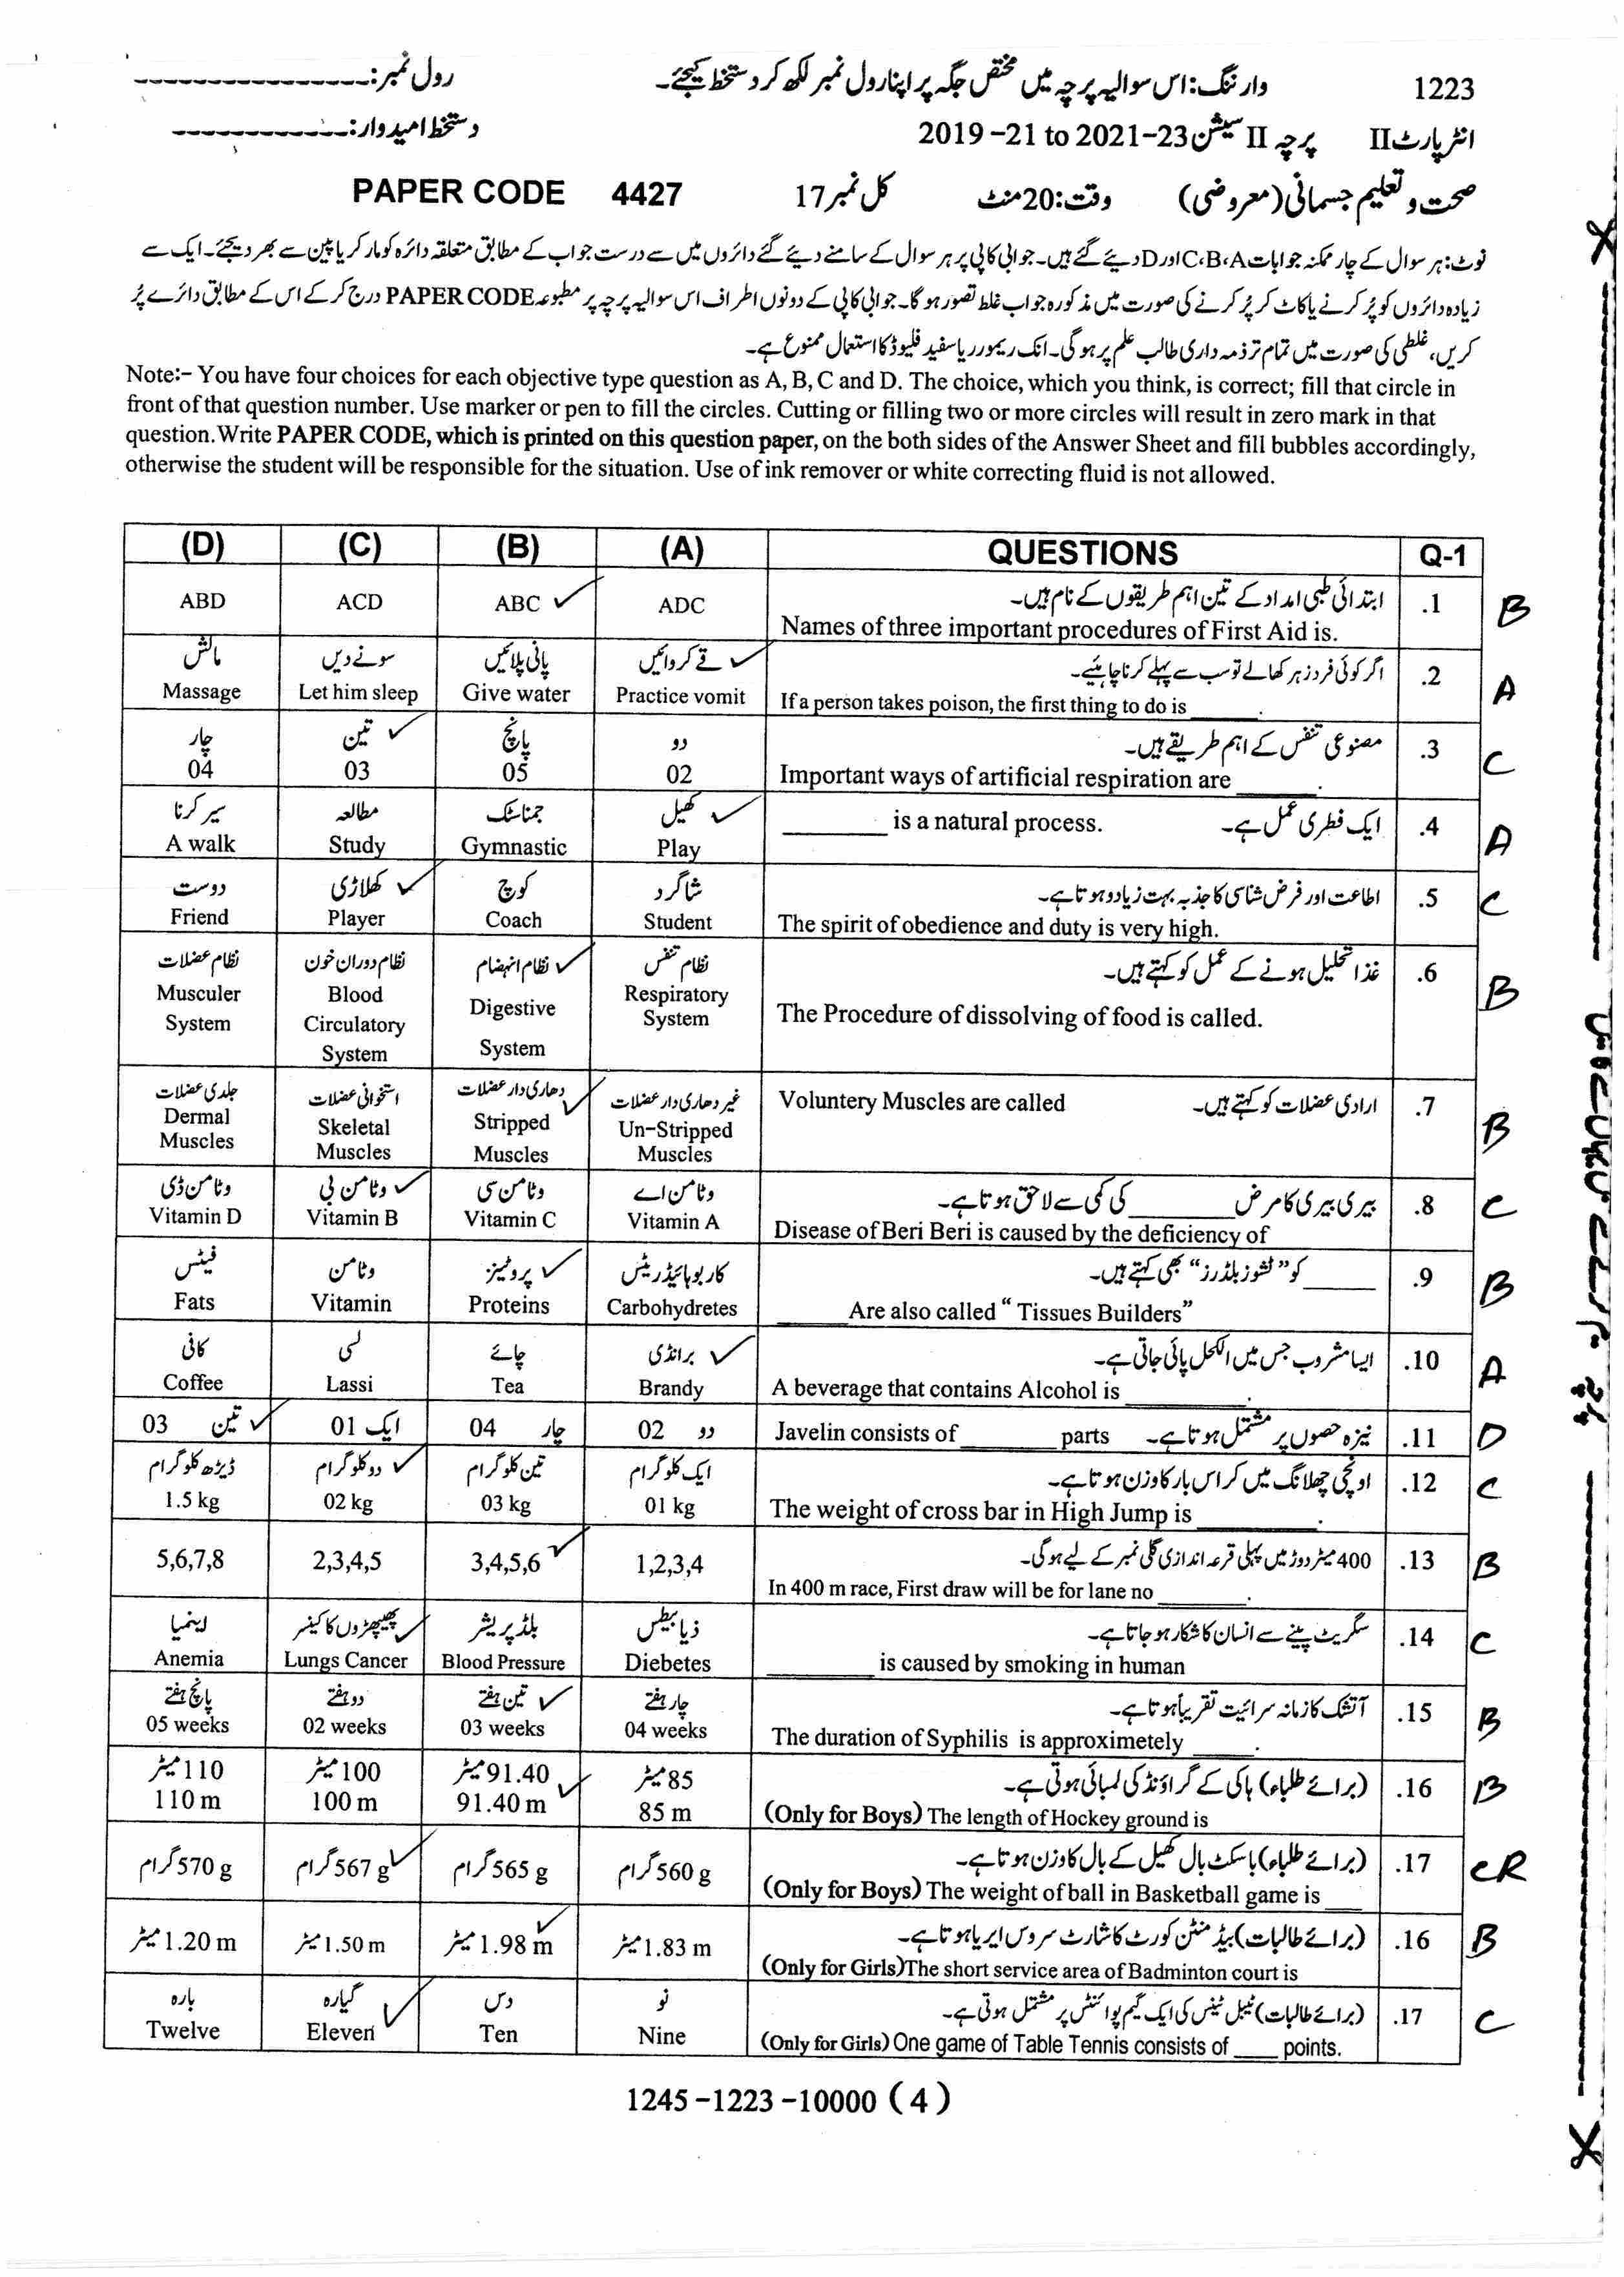 1223 وارننگ: اس سوالیہ پرچہ میں مختص جگہ پر اپنا رول نمبر لکھ کر دستخط کیجئے۔ رول نمبر:
انٹر پارٹ II پرچہ II سیشن 2019-21 to 2021-23 دستخط امیدوار:
صحت و تعلیم جسمانی (معروضی) وقت: 20 منٹ کل نمبر 17 PAPER CODE 4427
نوٹ: ہر سوال کے چار ممکنہ جوابات A، B، C اور D دیئے گئے ہیں۔ جوابی کاپی پر ہر سوال کے سامنے دیئے گئے دائروں میں سے درست جواب کے مطابق متعلقہ دائرہ کو مارکر یا پین سے بھر دیجئے۔ ایک سے
زیادہ دائروں کو پُر کرنے یا کاٹ کر پُر کرنے کی صورت میں مذکورہ جواب غلط تصور ہو گا۔ جوابی کاپی کے دونوں اطراف اس سوالیہ پرچہ پر مطبوعہ PAPER CODE درج کر کے اس کے مطابق دائرے پُر
کریں، غلطی کی صورت میں تمام تر ذمہ داری طالب علم پر ہو گی۔ انک ریمور ر یا سفید فلیوڈ کا استعمال ممنوع ہے۔
Note:- You have four choices for each objective type question as A, B, C and D. The choice, which you think, is correct; fill that circle in
front of that question number. Use marker or pen to fill the circles. Cutting or filling two or more circles will result in zero mark in that
question. Write PAPER CODE, which is printed on this question paper, on the both sides of the Answer Sheet and fill bubbles accordingly,
otherwise the student will be responsible for the situation. Use of ink remover or white correcting fluid is not allowed.
(D) (C) (B) (A) QUESTIONS Q-1
ابتدائی طبی امداد کے تین اہم طریقوں کے نام ہیں۔ .1
ABD ACD ABC ✓ ADC B
Names of three important procedures of First Aid is.
مالش سونے دیں پانی پلائیں قے کروائیں ✓ اگر کوئی فرد زہر کھا لے تو سب سے پہلے کرنا چاہیئے۔ .2
Massage Let him sleep Give water Practice vomit If a person takes poison, the first thing to do is ______. A
چار تین ✓ پانچ دو مصنوعی تنفس کے اہم طریقے ہیں۔ .3
04 03 05 02 Important ways of artificial respiration are ______. C
سیر کرنا مطالعہ جمناسٹک کھیل ✓ ______ is a natural process. ایک فطری عمل ہے۔ .4
A walk Study Gymnastic Play A
دوست کھلاڑی ✓ کوچ شاگرد اطاعت اور فرض شناسی کا جذبہ بہت زیادہ ہوتا ہے۔ .5
Friend Player Coach Student The spirit of obedience and duty is very high. C
نظام عضلات نظام دوران خون نظام انہضام ✓ نظام تنفس غذا تحلیل ہونے کے عمل کو کہتے ہیں۔ .6
Musculer Blood Digestive Respiratory
System Circulatory System System The Procedure of dissolving of food is called. B
System
جلدی عضلات استخوانی عضلات دھاری دار عضلات ✓ غیر دھاری دار عضلات Voluntery Muscles are called ارادی عضلات کو کہتے ہیں۔ .7
Dermal Skeletal Stripped Un-Stripped
Muscles Muscles Muscles Muscles B
وٹامن ڈی وٹامن بی ✓ وٹامن سی وٹامن اے بیری بیری کا مرض ______ کی کمی سے لاحق ہوتا ہے۔ .8
Vitamin D Vitamin B Vitamin C Vitamin A Disease of Beri Beri is caused by the deficiency of C
فیٹس وٹامن پروٹینز ✓ کاربوہائیڈریٹس ______ کو ”ٹشوز بلڈرز“ بھی کہتے ہیں۔ .9
Fats Vitamin Proteins Carbohydretes ______Are also called “ Tissues Builders” B
کافی لسی چائے برانڈی ✓ ایسا مشروب جس میں الکحل پائی جاتی ہے۔ .10
Coffee Lassi Tea Brandy A beverage that contains Alcohol is ______. A
03 تین ✓ 01 ایک 04 چار 02 دو Javelin consists of ______ parts نیزہ حصوں پر مشتمل ہوتا ہے۔ .11 D
ڈیڑھ کلوگرام دو کلوگرام ✓ تین کلوگرام ایک کلوگرام اونچی چھلانگ میں کراس بار کا وزن ہوتا ہے۔ .12
1.5 kg 02 kg 03 kg 01 kg The weight of cross bar in High Jump is ______. C
5,6,7,8 2,3,4,5 3,4,5,6 ✓ 1,2,3,4 400 میٹر دوڑ میں پہلی قرعہ اندازی گلی نمبر کے لیے ہو گی۔ .13 B
In 400 m race, First draw will be for lane no ______.
اینمیا پھیپھڑوں کا کینسر ✓ بلڈ پریشر ذیابیطس سگریٹ پینے سے انسان کا شکار ہو جاتا ہے۔ .14
Anemia Lungs Cancer Blood Pressure Diebetes ______ is caused by smoking in human C
پانچ ہفتے دو ہفتے تین ہفتے ✓ چار ہفتے آتشک کا زمانہ سرائیت تقریباً ہوتا ہے۔ .15
05 weeks 02 weeks 03 weeks 04 weeks The duration of Syphilis is approximetely ______. B
110 میٹر 100 میٹر 91.40 میٹر ✓ 85 میٹر (برائے طلباء) ہاکی کے گراؤنڈ کی لمبائی ہوتی ہے۔ .16
110 m 100 m 91.40 m 85 m (Only for Boys) The length of Hockey ground is B
570 g گرام 567 g گرام ✓ 565 g گرام 560 g گرام (برائے طلباء) باسکٹ بال کھیل کے بال کا وزن ہوتا ہے۔ .17
(Only for Boys) The weight of ball in Basketball game is ___ CR
1.20 m میٹر 1.50 m میٹر 1.98 m میٹر ✓ 1.83 m میٹر (برائے طالبات) بیڈمنٹن کورٹ کا شارٹ سروس ایریا ہوتا ہے۔ .16
(Only for Girls)The short service area of Badminton court is B
بارہ گیارہ ✓ دس نو (برائے طالبات) ٹیبل ٹینس کی ایک گیم پوائنٹس پر مشتمل ہوتی ہے۔ .17
Twelve Eleven Ten Nine (Only for Girls) One game of Table Tennis consists of ____ points. C
1245 -1223 -10000 ( 4 )